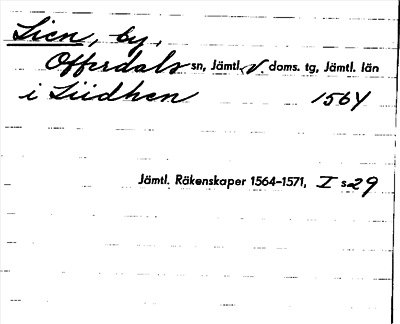 Lien, by,
Offerdals sn, Jämtl. v. doms. tg, Jämtl. län
i Liidhen 1564
Jämtl. Räkenskaper 1564–1571, I s 29